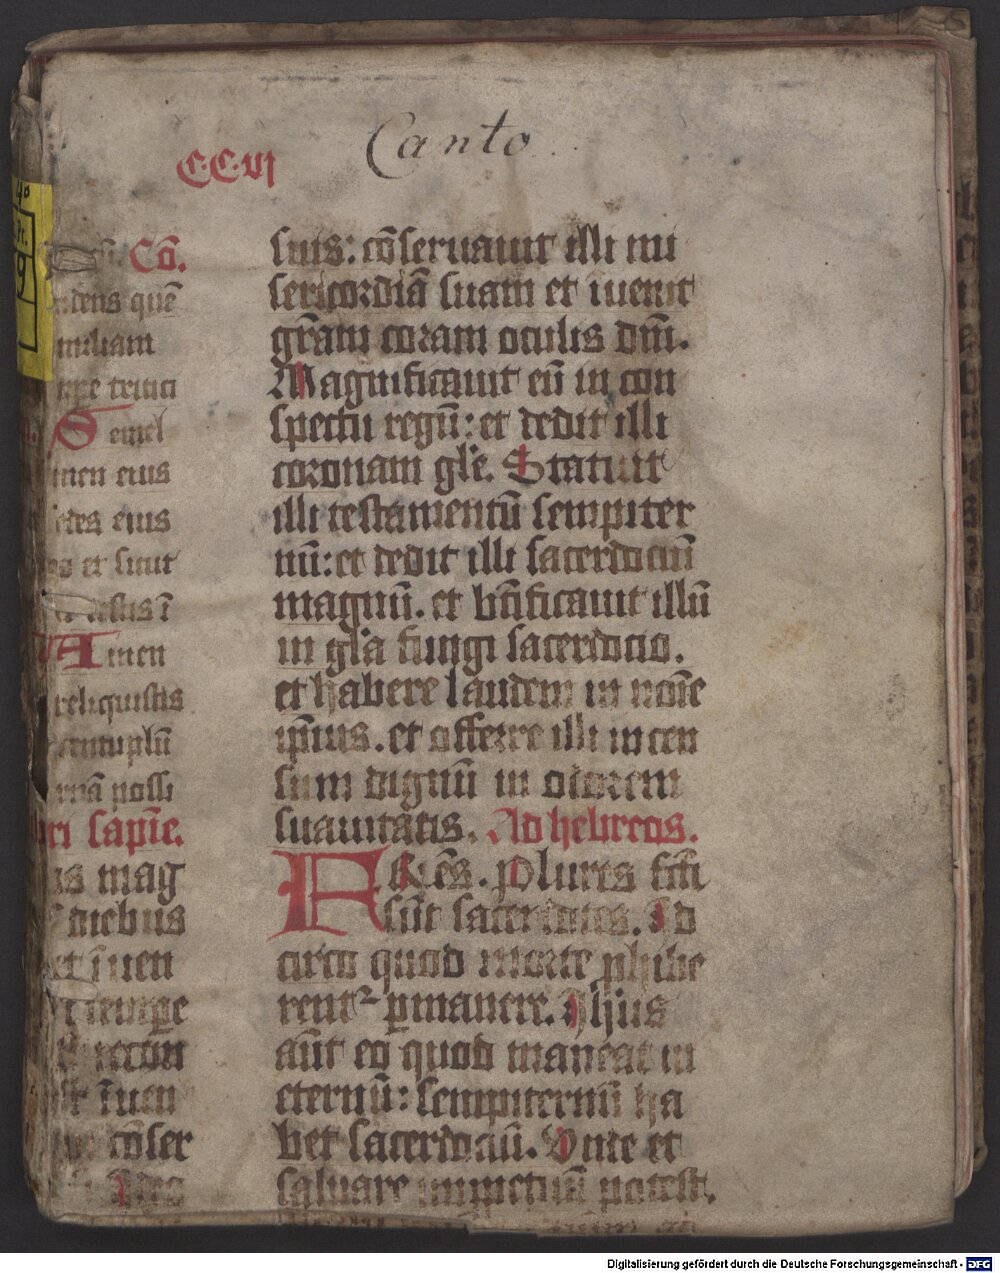 Canto
C·C·vj
Cō.
ndens quē
miliam
npe tritici
Semel
men eius
edes eius
go et sicut
estus ī
Amen
reliquistis
centuplū
rnā possi
ri sapīe.
is mag
diebus
t īuen
t tempe
t īuen
cōser
suis: cōseruauit illi mi
sericordiā suam et iuenit
grām coram oculis dnī.
Magnificauit eū in con
spectu regū: et dedit illi
coronam glīe. Statuit
illi testamentū sempiter
nū: et dedit illi sacerdociū
magnū. et btīficauit illū
in glīa fungi sacerdocio.
et habere laudem in noīe
ipīus. et offerre illi incen
sum dignū in odorem
suauitatis. Ad hebreos.
FRēs. Plures fcī
sūt sacerdotes. Id
circo quod morte phibe
rent² pmanere. Ihīus
aūt eo quod maneat in
eternū: sempiternū ha
bet sacerdociū. Vnde et
saluare imppetuū potest.
Digitalisierung gefördert durch die Deutsche Forschungsgemeinschaft - DFG